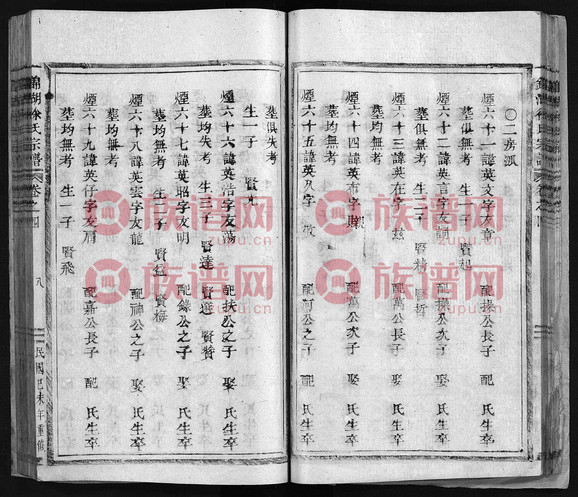 〇二房派
煙六十一諱英文字友章 配操公長子 娶 氏生卒
墓均無考 生一子 賢起
煙六十二諱英言字友 配操公次子 娶 氏生卒
墓俱無考 生二子 賢 賢哲
煙六十三諱英在字 配萬公長子 娶 氏生卒
墓均無考
煙六十四諱英布字 配萬公次子 娶 氏生卒
墓俱無考
煙六十五諱英久字 配 公之子 配 氏生卒
墓俱失考
生一子 賢九
煙六十六諱英浩字友蕩 配扶公之子 娶 氏生卒
墓均失考 生三子 賢達 賢進 賢贊
煙六十七諱英昭字友明 配錄公之子 娶 氏生卒
墓均無考 生二子 賢 賢梅
煙六十八諱英雲字友龍 配神公之子 娶 氏生卒
墓均無考
煙六十九諱英仔字友眉 配嘉公長子 配 氏生卒
墓均無考 生一子 賢飛
錦湖徐氏宗譜 卷之四 八 民國己未年重修
錦湖徐氏宗譜 卷之四
族谱网
zupu.cn